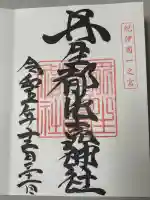 紀伊國一之宮
丹生都比売神社
令和五年十二月三十一日